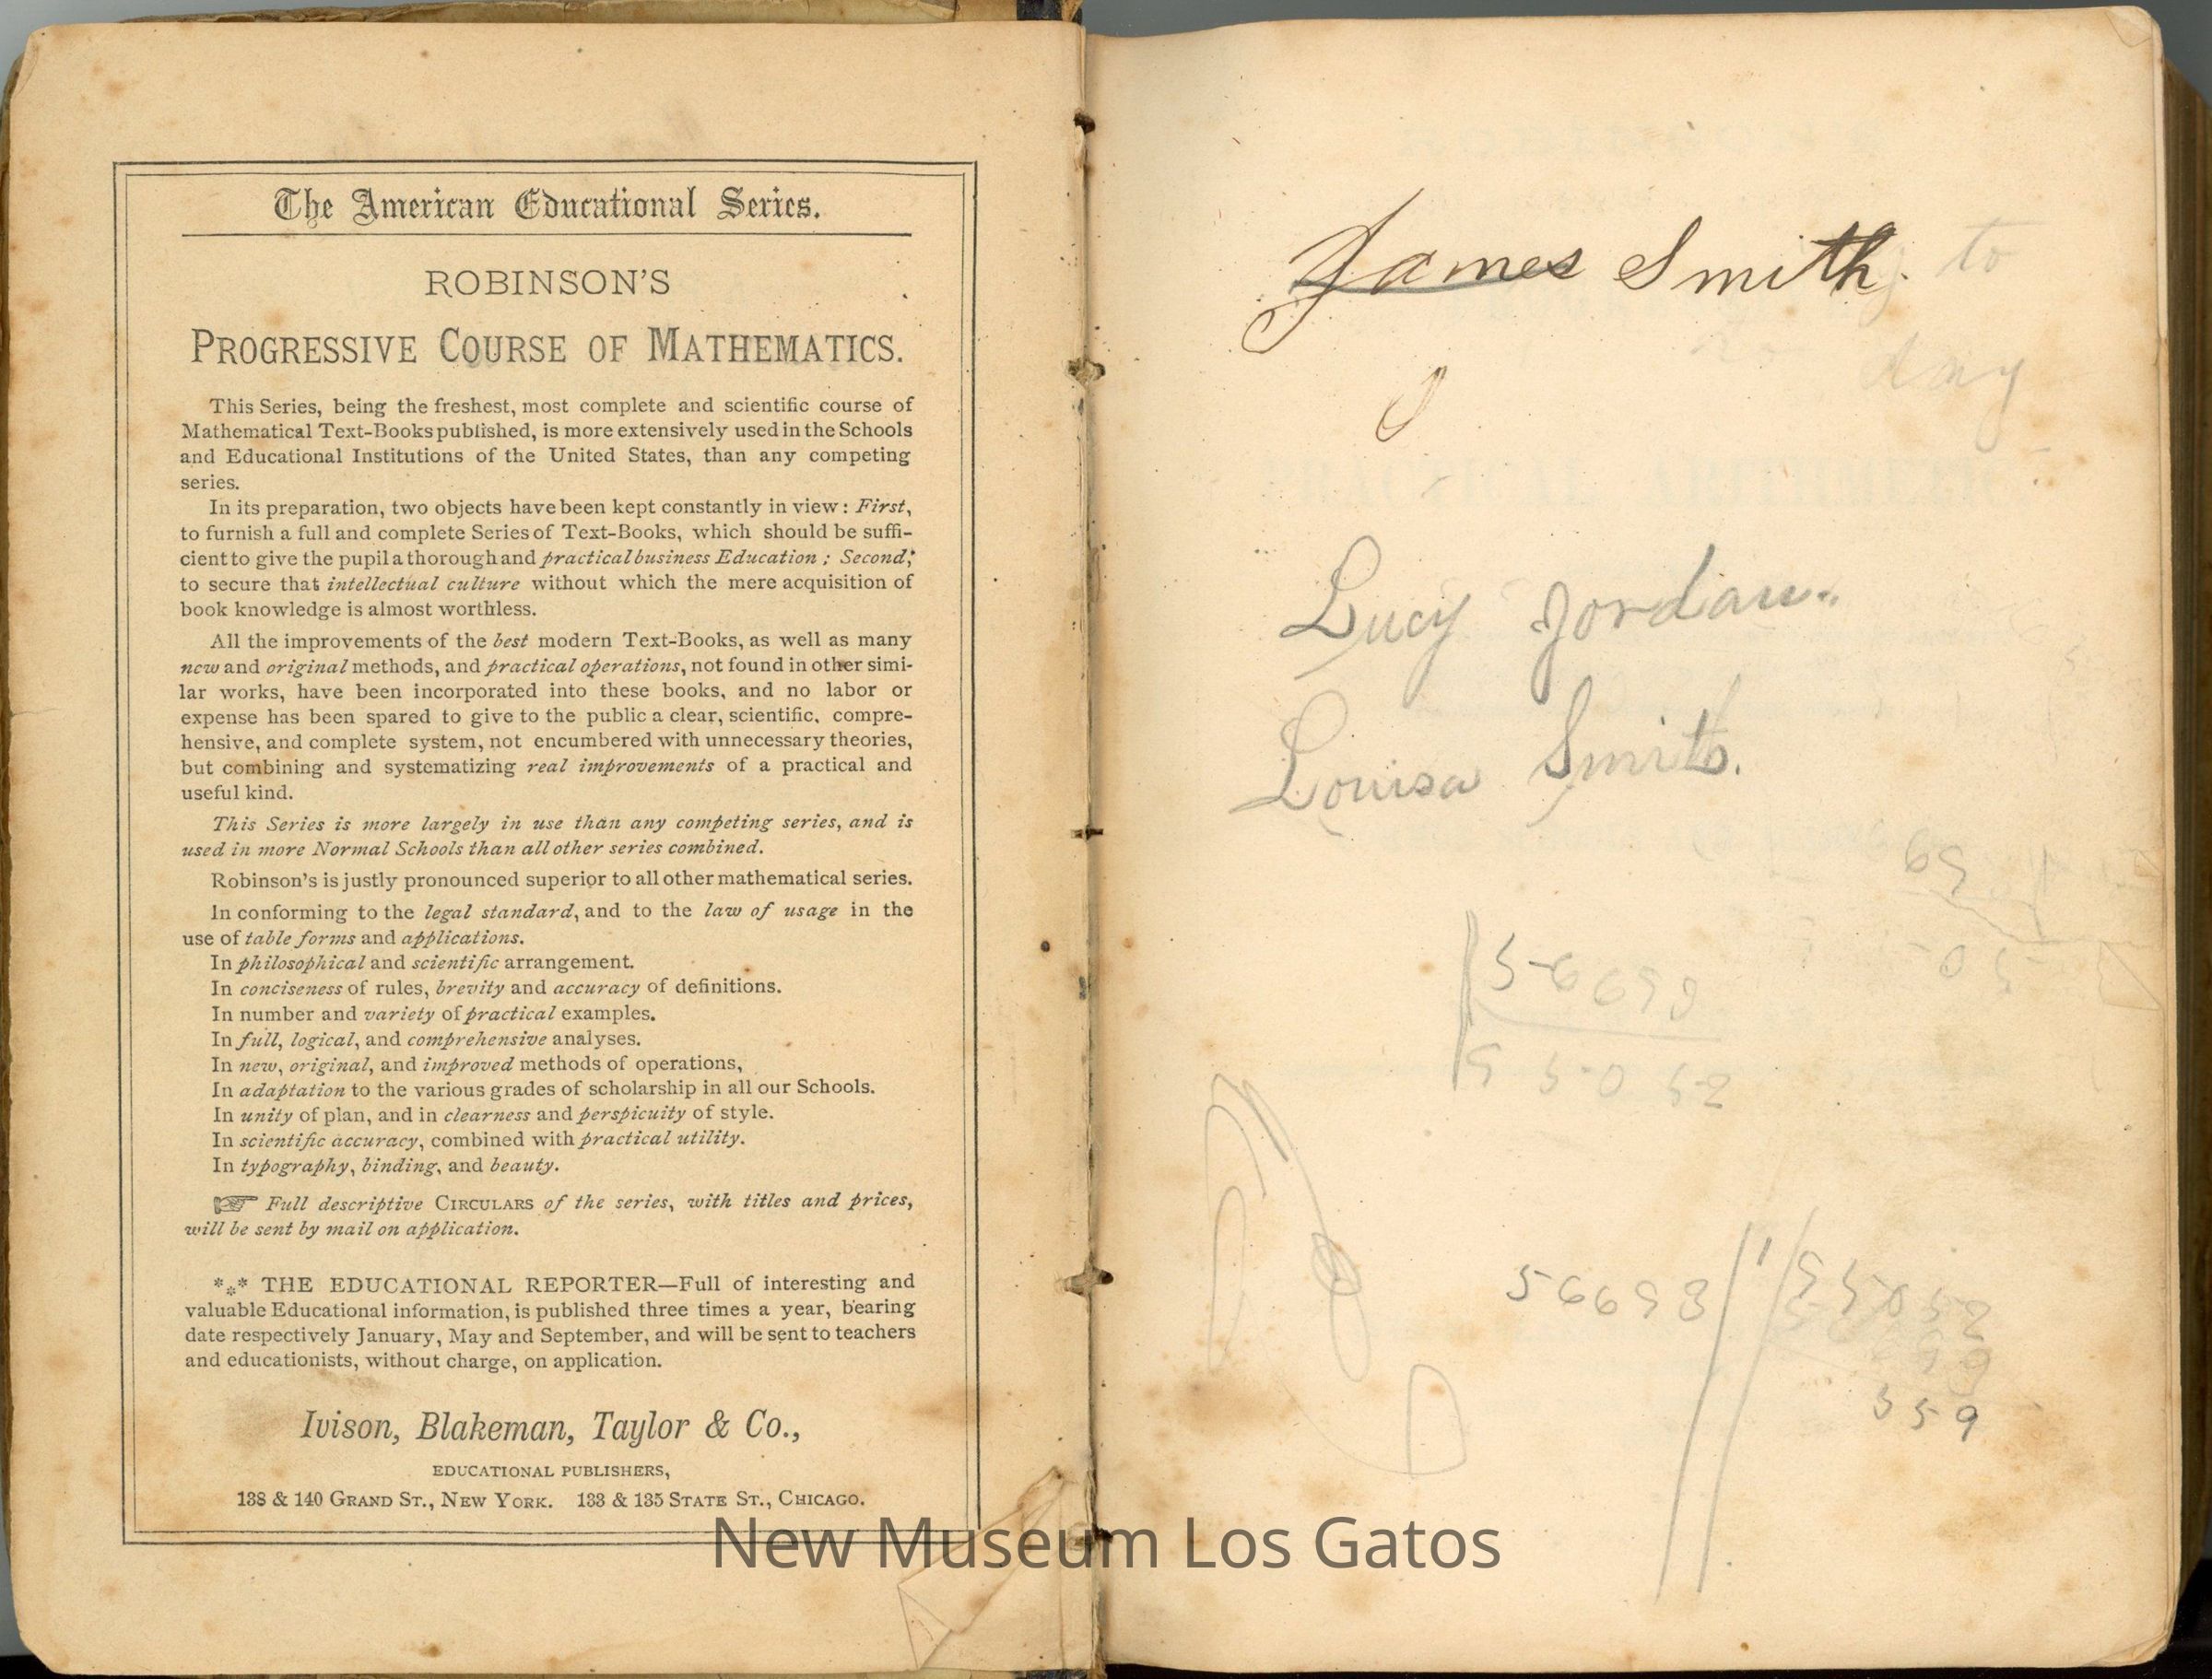 The American Educational Series.
ROBINSON'S
PROGRESSIVE COURSE OF MATHEMATICS.
This Series, being the freshest, most complete and scientific course of
Mathematical Text-Books published, is more extensively used in the Schools
and Educational Institutions of the United States, than any competing
series.
In its preparation, two objects have been kept constantly in view: First,
to furnish a full and complete Series of Text-Books, which should be suffi-
cient to give the pupil a thorough and practical business Education; Second,
to secure that intellectual culture without which the mere acquisition of
book knowledge is almost worthless.
All the improvements of the best modern Text-Books, as well as many
new and original methods, and practical operations, not found in other simi-
lar works, have been incorporated into these books, and no labor or
expense has been spared to give to the public a clear, scientific, compre-
hensive, and complete system, not encumbered with unnecessary theories,
but combining and systematizing real improvements of a practical and
useful kind.
This Series is more largely in use than any competing series, and is
used in more Normal Schools than all other series combined.
Robinson's is justly pronounced superior to all other mathematical series.
In conforming to the legal standard, and to the law of usage in the
use of table forms and applications.
In philosophical and scientific arrangement.
In conciseness of rules, brevity and accuracy of definitions.
In number and variety of practical examples.
In full, logical, and comprehensive analyses.
In new, original, and improved methods of operations,
In adaptation to the various grades of scholarship in all our Schools.
In unity of plan, and in clearness and perspicuity of style.
In scientific accuracy, combined with practical utility.
In typography, binding, and beauty.
☞ Full descriptive CIRCULARS of the series, with titles and prices,
will be sent by mail on application.
*⁎* THE EDUCATIONAL REPORTER—Full of interesting and
valuable Educational information, is published three times a year, bearing
date respectively January, May and September, and will be sent to teachers
and educationists, without charge, on application.
Ivison, Blakeman, Taylor & Co.,
EDUCATIONAL PUBLISHERS,
138 & 140 GRAND ST., NEW YORK. 133 & 135 STATE ST., CHICAGO.
James Smith. to
day
Lucy Jordan.
Louisa Smith.
69
56698
55052
56698 55052
359
New Museum Los Gatos